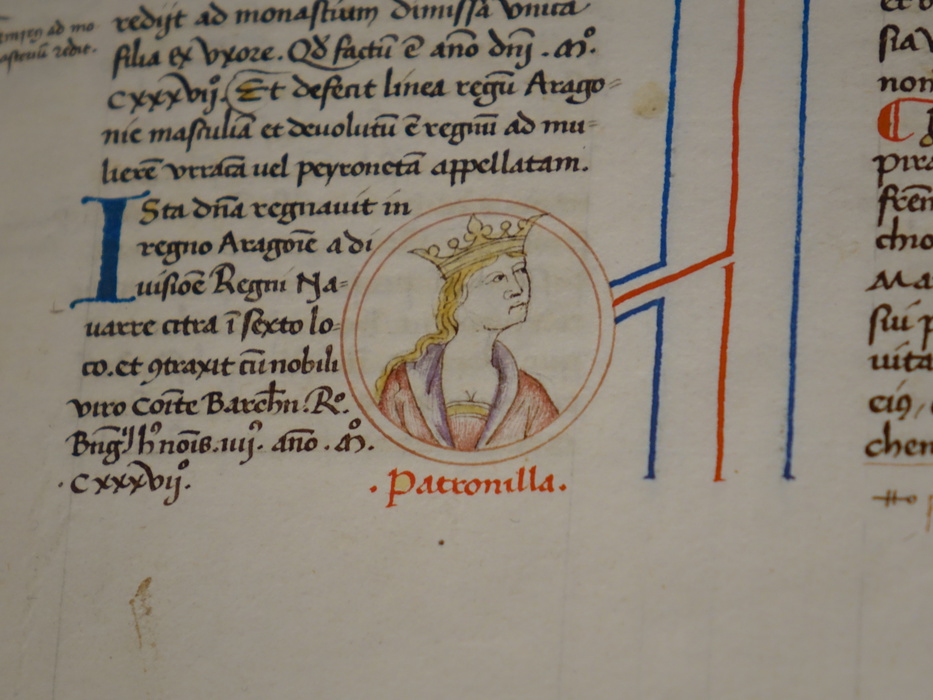 redijt ad monastium dimissa vnica
filia ex vxore. Qd factū ē año dñi . mº.
cxxxvijº. Et defecit linea regū Arago=
nie masculiā et deuolutū ē regnū ad mu=
lierē vrracā uel peyronetā appellatam.
ISta dña regnauit in
regno Aragoīe a di
uisiōe Regni Na=
uarre citra ī sexto lo=
co. et 9traxit cū nobili
viro Coīte Barchñ. Rº.
Bñg
año . mº.
. cxxxvijº.
. Patronilla.
ad mo
redit.
non
pira
chio
Ma
siu p
uita
chen